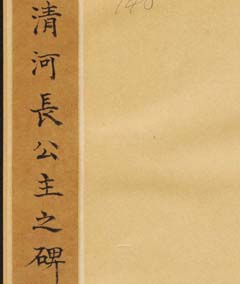 清河長公主之碑